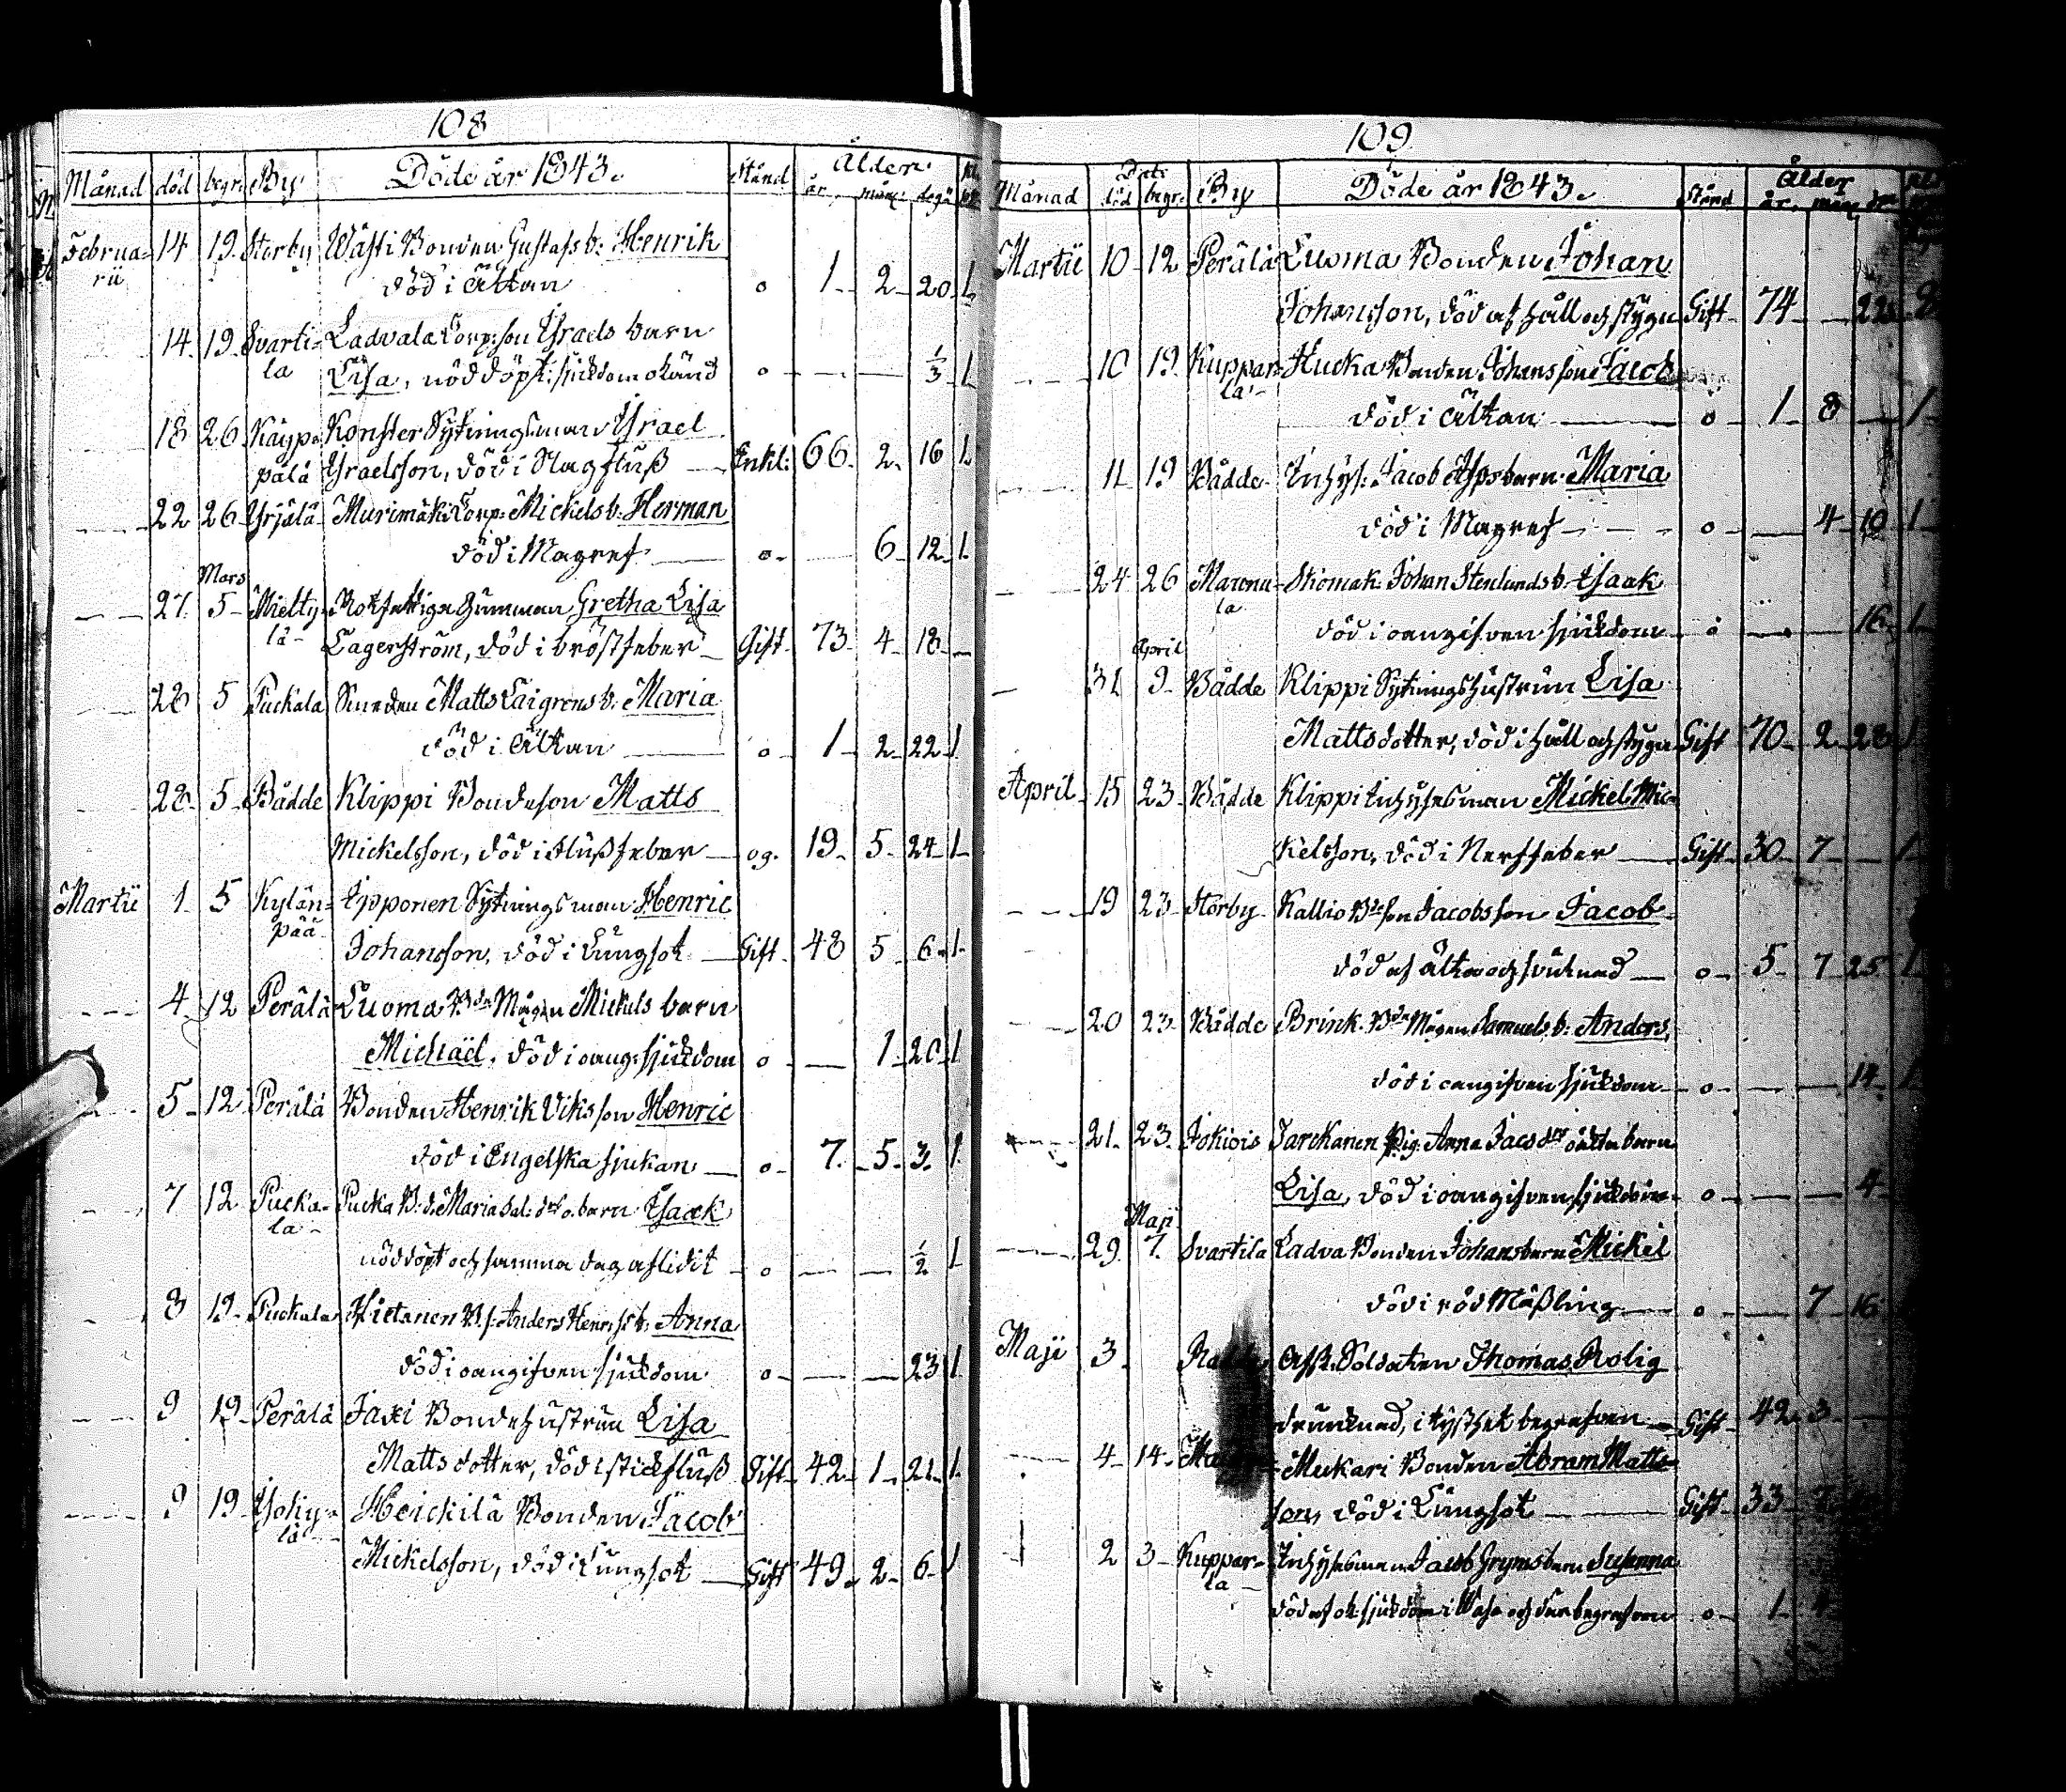 108
Döde år 1843.
Månad död begr. By Stånd Ålder
år mån: dag:
Februa- 14 19. Storby Wästi Bonden Gustafs b: Henrik
rii död i Ältan o 1 2 20 1
14 19 Svarti- Ladvala Torp:son Israels barn
la Lisa, nöddöpt: sjukdom okänd o 1/3 1
18 26 Käyp- Konster Sytningsman Israel
pälä Israelsson, död i Slagfluß Enkl: 66 2 16 1
22 26 Yrjälä Murimäki Torp: Mickels b: Herman
död i Magref o 6 12 1
Mars
27 5 Mietty- Rotfattiga Gumman Gretha Lisa
lä Lagerström, död i bröstfeber Gift 73 4 18
28 5 Puckala Smeden Matts b: Maria
död i Ältan o 1 2 22 1
28 5 Bådde Klippi Bondeson Matts
Mickelsson, död i Flußfeber og. 19 5 24 1
Martii 1 5 Kylän- Ypponen Sytningsman Henric
pää Johansson, död i Lungsot Gift 48 5 6 1
4 12 Perälä Luoma Bde Mågen Mickels barn
Michaël, död i oang: sjukdom o 1 20 1
5 12 Perälä Bonden Henrik Vikssson Henric
död i Engelska sjukan o 7 5 3 1
7 12 Pucka- Pucka B: d. Maria Sal: dr o. barn Isaak
la nöddöpt och samma dag aflidit o 1/2 1
8 12 Puckala Hietanen B.s: Anders Henr: s: b. Anna
död i oangifven sjukdom o 23 1
9 19 Perälä Jaxi Bondehustrun Lisa
Mattsdotter, död i stickfluß Gift 42 1 21 1
9 19 Yohy- Heickilä Bonden Jacob
lä Mickelsson, död i Lungsot Gift 49 2 6 1
109
Döde år 1843.
Månad död begr: By Stånd Ålder
år. mån
Martii 10 12 Perälä Luoma Bonden Johan
Johansson, död af håll och styng Gift 74 22
10 19 Kuppar- Hucka Bonden Johanssons Jacob
la död i Ältan o 1 8 1
11 19 Bådde Inhys: Jacob barn Maria
död i Magref o 4 10 1
24 26 Maronu- Skomak: Johan Stenlunds b: Isaak
la död i oangifven sjukdom o 16 1
April
31 9 Bådde Klippi Sytningshustrun Lisa
Mattsdotter, död i håll och styng Gift 70 2 28 1
April 15 23 Bådde Klippi Inhysesman Mickel Mic-
kelsson, död i Nerffeber Gift 30 7 1
19 23 Storby Kallio Bdeson Jacobsson Jacob
död af Ältan och svulnad o 5 7 25 1
20 23 Bådde Brink Bde Mågen Samuels b: Anders,
död i oangifven sjukdom o 14 1
21 23 Jokiois Jarckanen Pig: Anna Jacs dr oäkta barn
Lisa, död i oangifven sjukdom o 4
Maji
29 7 Svartila Ladva Bonden Johans barn Mickel
död i röd Mäßling o 7 16
Maji 3 Afsk: Soldaten Thomas Rolig
drunknad, i tysthet begrafven Gift 42 3
4 14 Muckari Bonden Abram Matts-
son, död i Lungsot Gift 33
2 3 Kuppar- Inhysesman Jacob barn Susanna
la död af ok: sjukdom i Wasa och där begrafven o 1